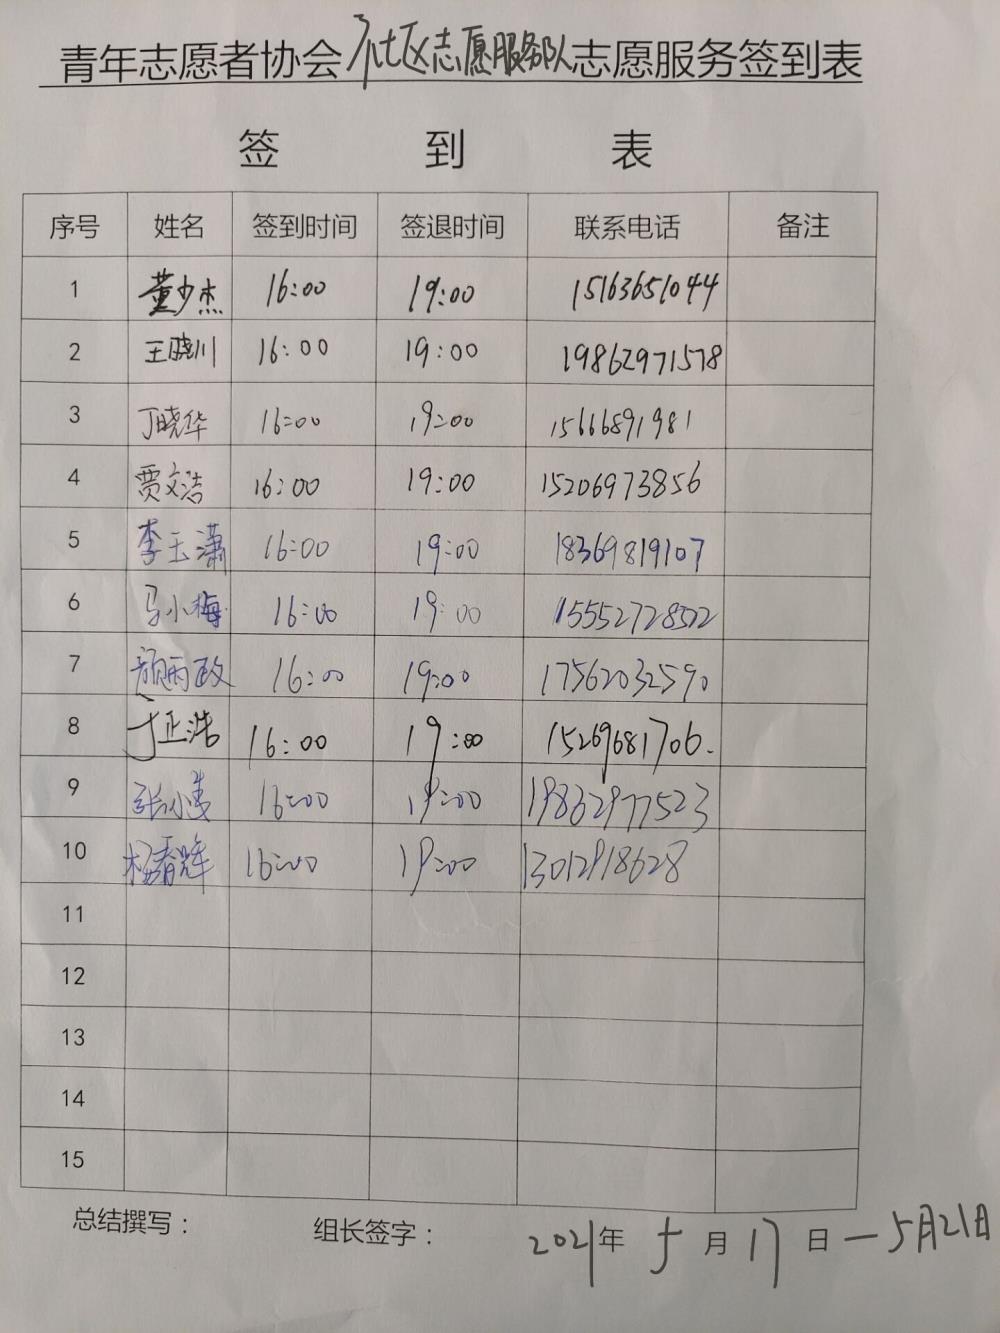 青年志愿者协会社区志愿服务队志愿服务签到表
签 到 表
序号 姓名 签到时间 签退时间 联系电话 备注
1 董少杰 16:00 19:00 15163651044
2 王晓川 16:00 19:00 19862971578
3 丁晓华 16:00 19:00 15666891981
4 贾文浩 16:00 19:00 15206973856
5 李玉潇 16:00 19:00 18369819107
6 马小梅 16:00 19:00 15552728502
7 颜丙政 16:00 19:00 17562032590
8 于正浩 16:00 19:00 15269681706.
9 张小 16:00 19:00 19862977523
10 杨春辉 16:00 19:00 13012918628
11
12
13
14
15
总结撰写： 组长签字： 2021年 5 月 17 日 — 5月21日